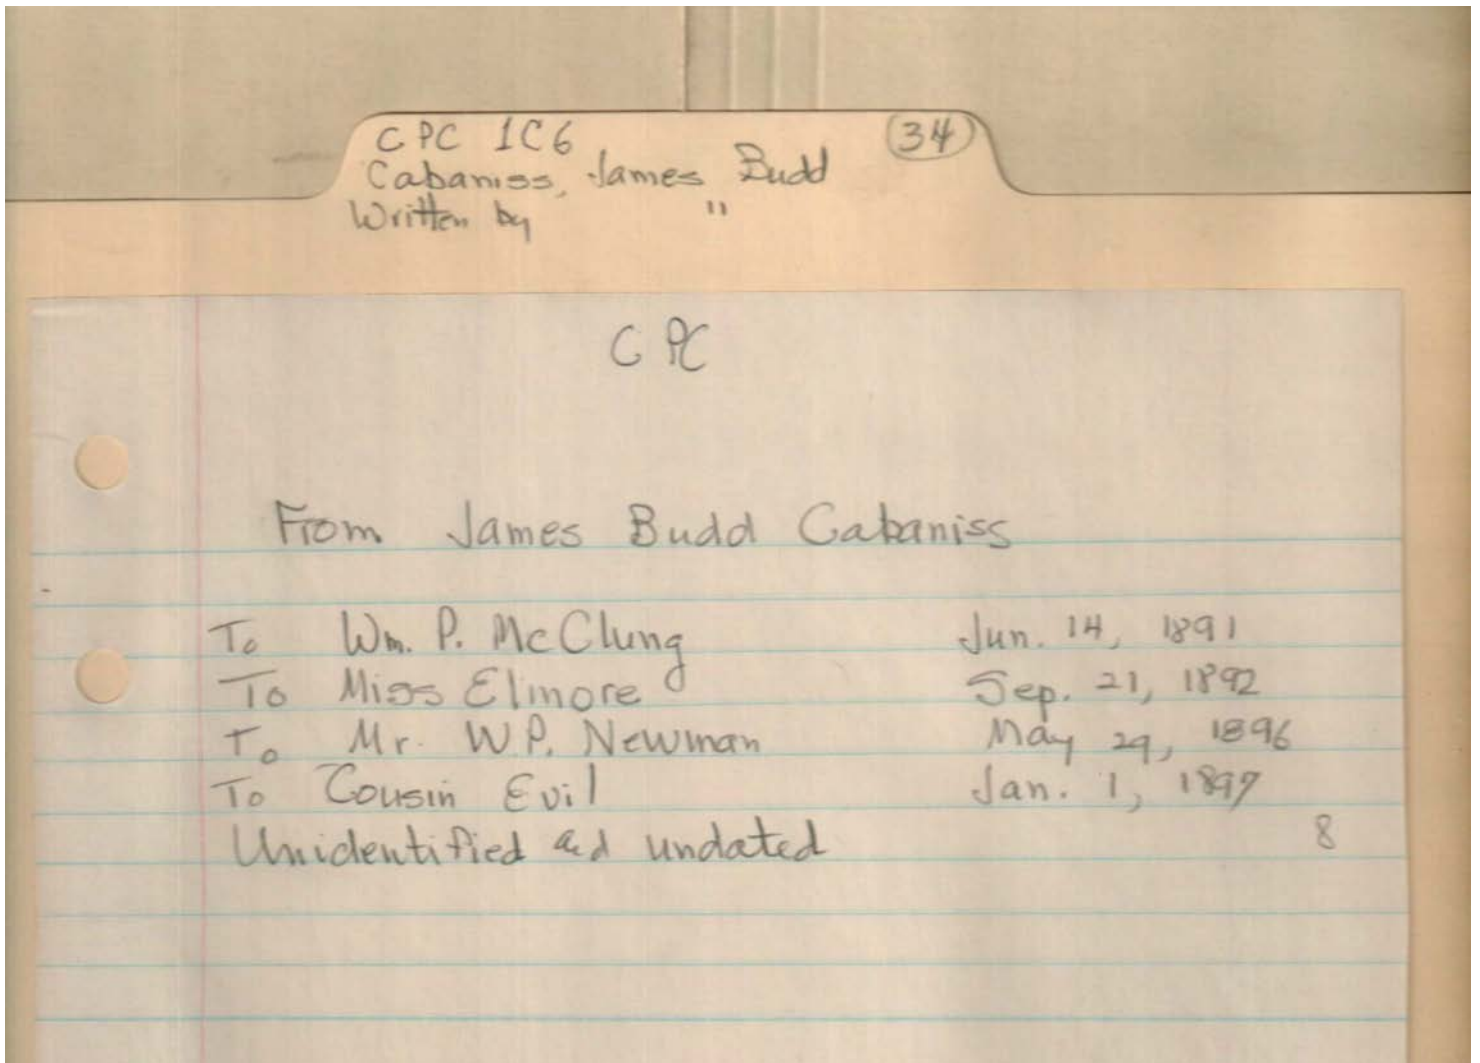 CPC 1C6 34
Cabaniss, James Budd
Written by "
CPC
From James Budd Cabaniss
To Wm. P. McClung Jun. 14, 1891
To Miss Elmore Sep. 21, 1892
To Mr. W.P. Newman May 29, 1896
To Cousin Evil Jan. 1, 1897
Unidentified and undated 8